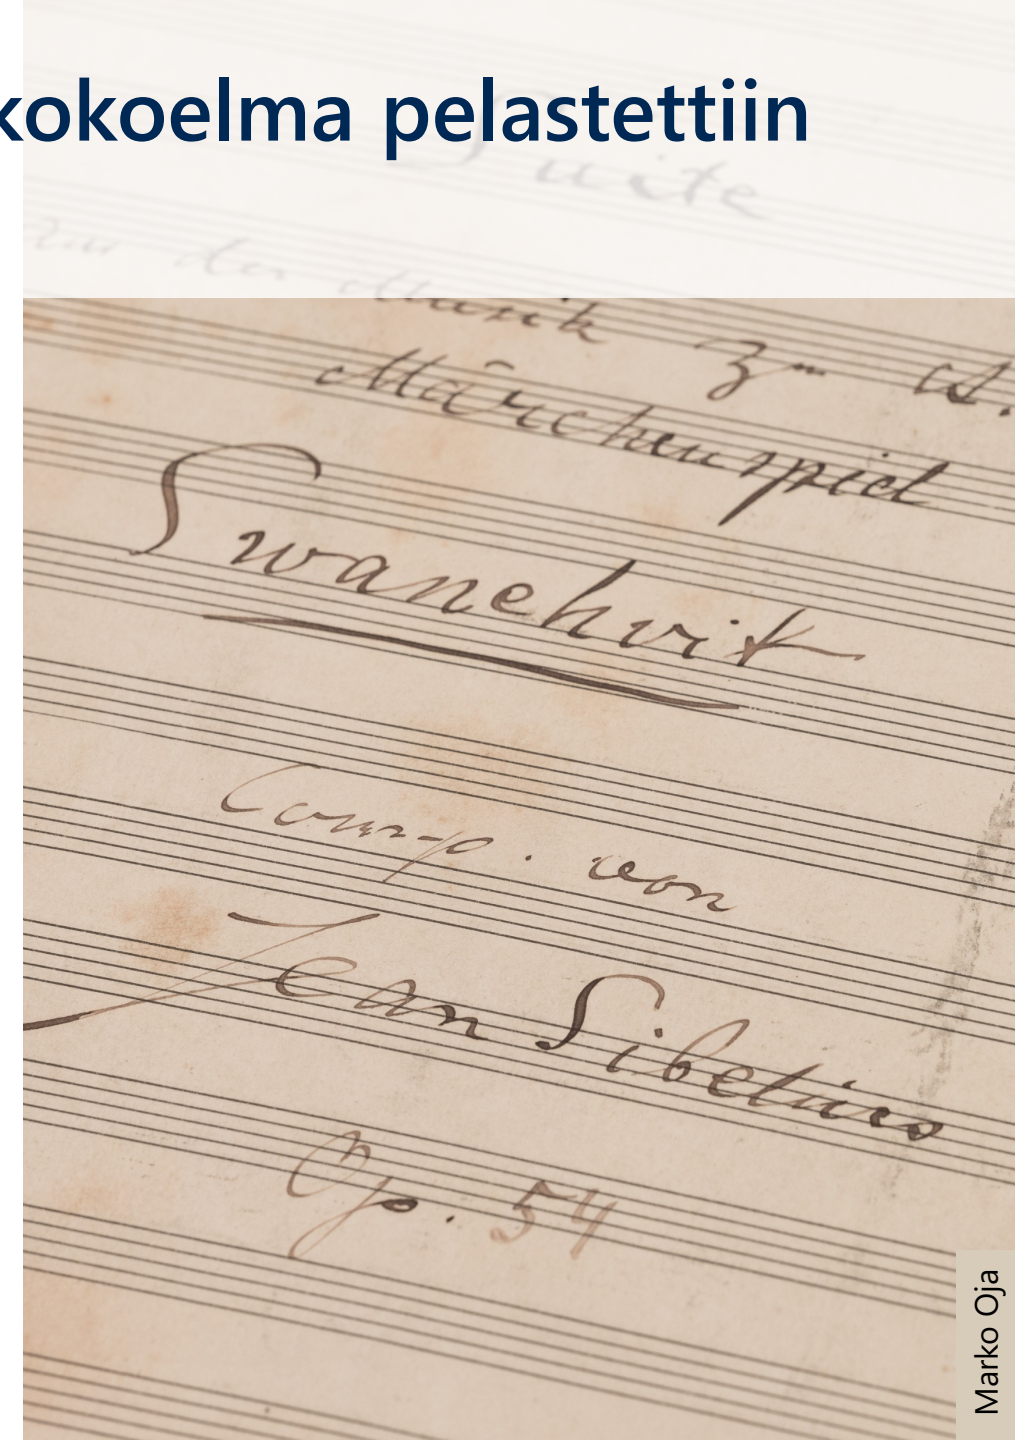 kokoelma pelastettiin
Suite
zur der Musik zum A.
Märchenspiel
Swanehvit
Comp. von
Jean Sibelius
Op. 54
Marko Oja